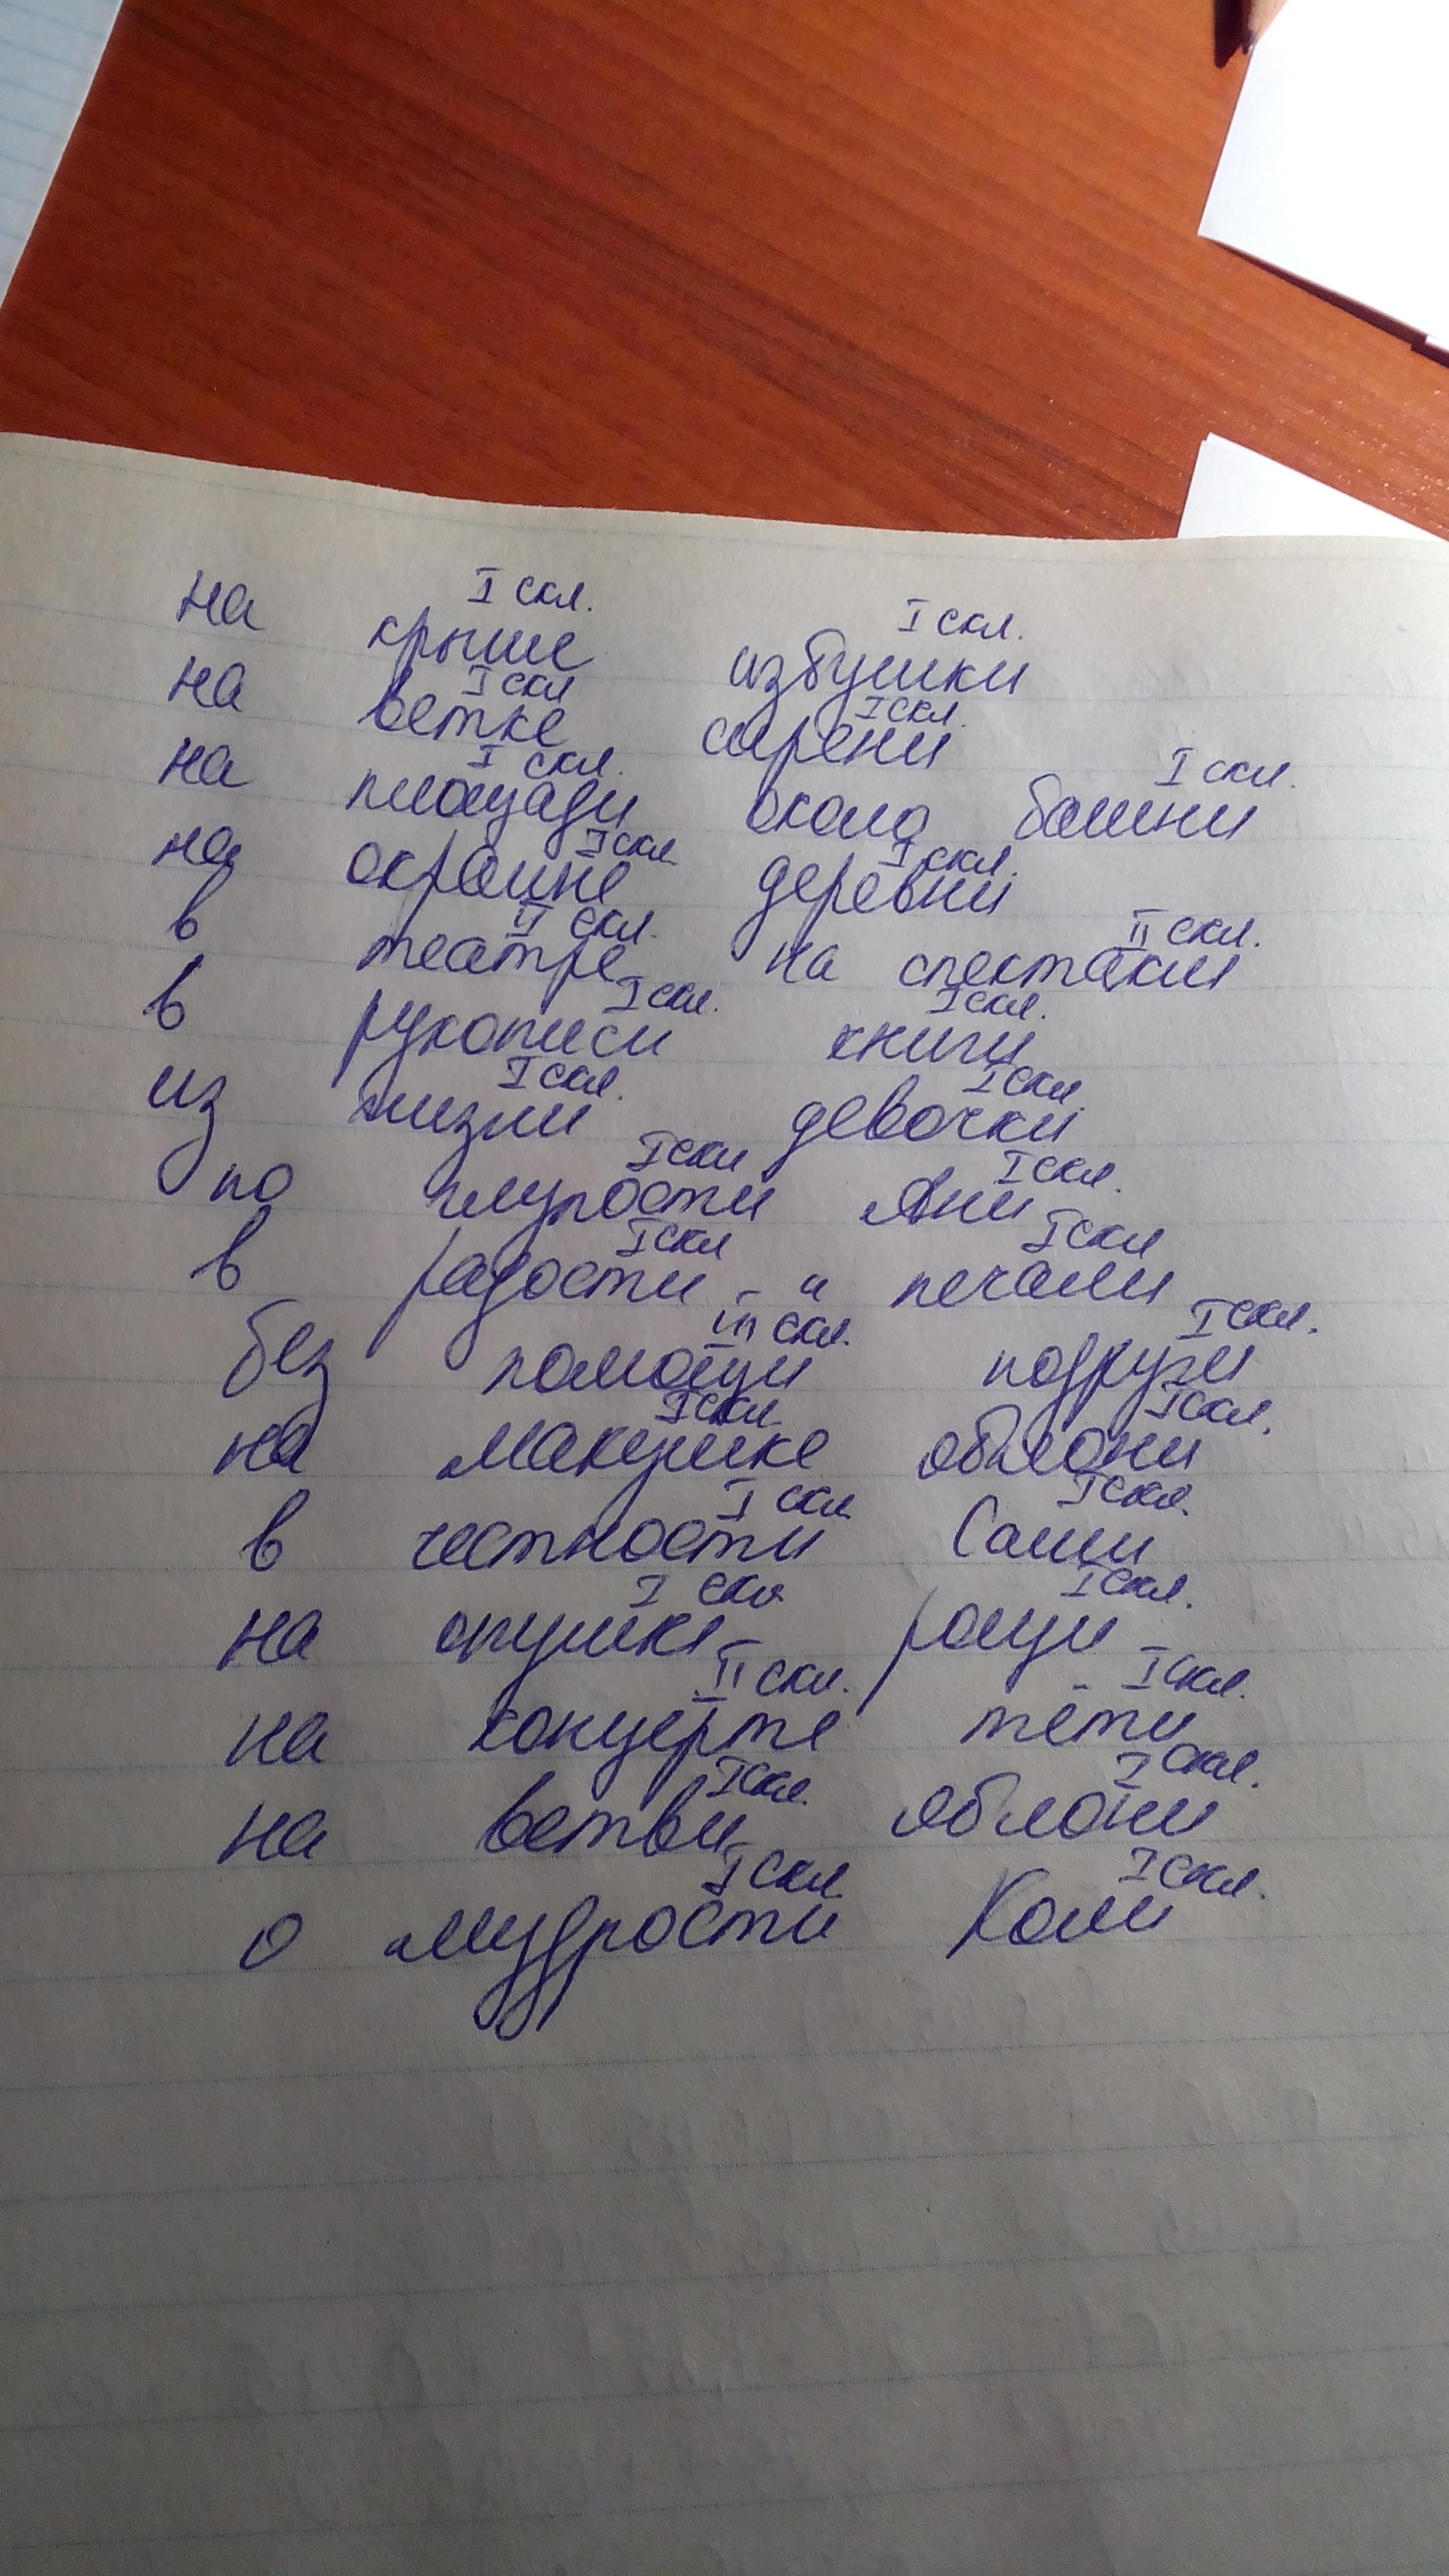 I скл. I скл.
на крыше избушки
I скл I скл.
на ветке сирени
I скл. I скл.
на площади около башни
I скл I скл.
на окраине деревни
II скл. II скл.
в театре на спектакли
I скл. I скл.
в рукописи книги
I скл. I скл.
из жизни девочки
I скл I скл.
по глупости Ани
I скл I скл
в радости - и печали
III скл. I скл.
без помощи подруги
I скл I скл.
на макушке яблони
I скл I скл.
в честности Саши
I скл I скл.
на опушке - рощи -
II скл. I скл.
на концерте тёти
I скл. I скл.
на ветви яблони
I скл. I скл.
о мудрости Коли